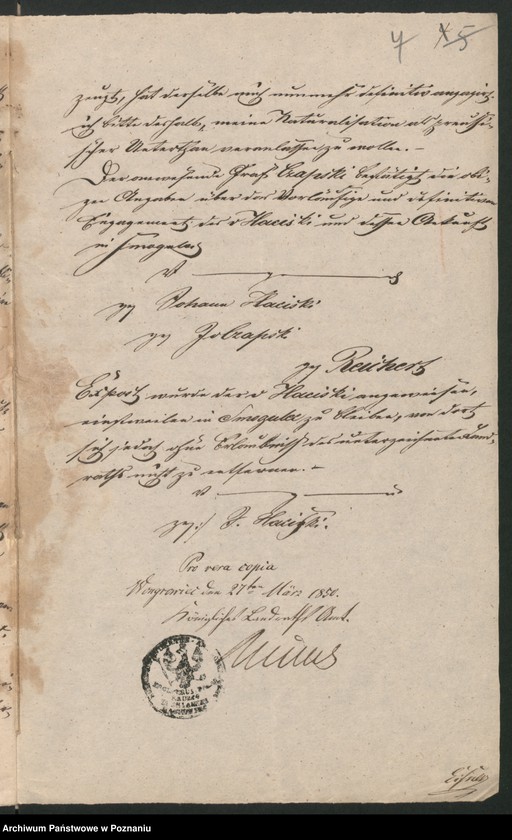 7 5
zeugt, hat derselbe mich nunmehr definitiv engagirt.
ich bitte deshalb, meine Naturalisation als preußi-
scher Unterthan veranlassen zu wollen. –
Der anwesende Graf Czapski bestätigt die obi-
gen Angaben über das vorläufige und definitive
Engagement des Haciski und dessen Ankunft
in Smogulec
V. g. u.
gez Johann Haciski
gez Czapski
gez Reichert
wurde der Haciski angewiesen,
einstweilen in Smogulec zu bleiben, von dort
sich jedoch ohne Erlaubniß des unterzeichneten Land-
raths nicht zu entfernen. –
V. g. u.
gez:/ J. Haciski.
Pro vera copia
Wongrowiec den 27ten März 1850.
Königliches Landraths Amt.
Archiwum Państwowe w Poznaniu